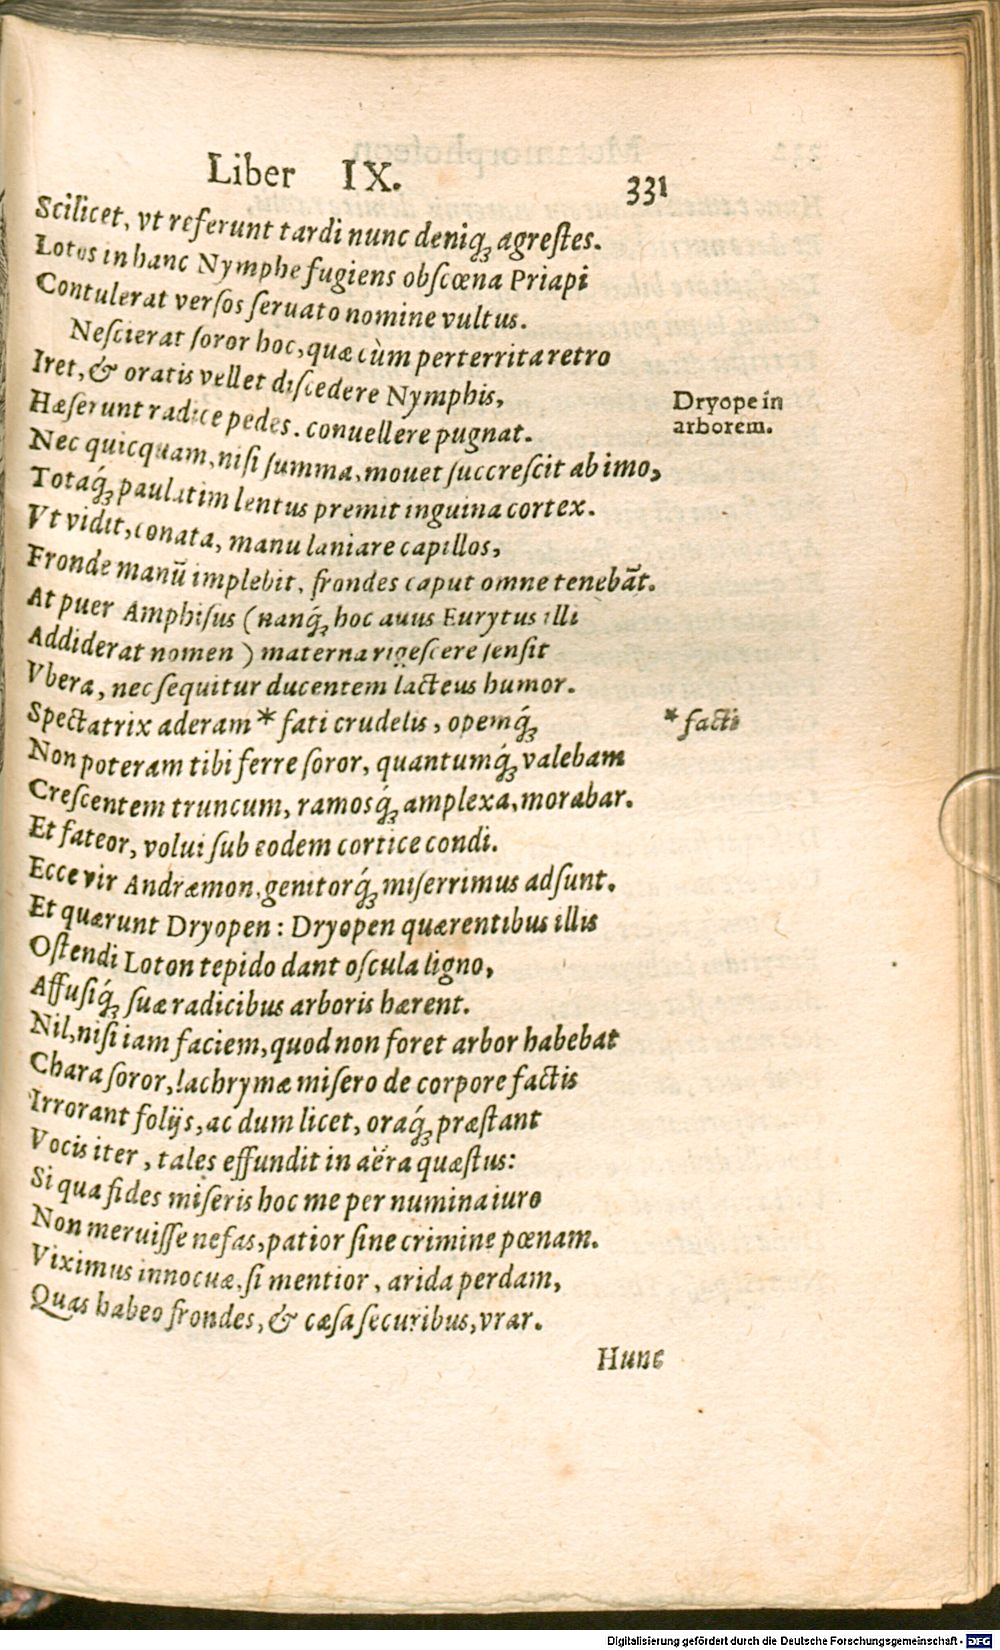 Liber IX. 331
Scilicet, vt referunt tardi nunc deniq́; agreſtes.
Lotos in hanc Nymphe fugiens obſcœna Priapi
Contulerat verſos ſeruato nomine vultus.
Neſcierat ſoror hoc, quæ cùm perterrita retro
Iret, & oratis vellet diſcedere Nymphis,
Dryope in
arborem.
Hæſerunt radice pedes. conuellere pugnat.
Nec quicquam, niſi ſumma, mouet ſuccreſcit ab imo,
Totaq́; paulatim lentus premit inguina cortex.
Vt vidit, conata, manu laniare capillos,
Fronde manũ implebit, frondes caput omne tenebãt.
At puer Amphiſus (nanq́; hoc auus Eurytus illi
Addiderat nomen ) materna rigeſcere ſenſit
Vbera, nec ſequitur ducentem lacteus humor.
Spectatrix aderam * fati crudelis, opemq́;
* facti
Non poteram tibi ferre ſoror, quantumq́; valebam
Creſcentem truncum, ramosq́; amplexa, morabar.
Et fateor, volui ſub eodem cortice condi.
Ecce vir Andræmon, genitorq́; miſerrimus adſunt.
Et quærunt Dryopen : Dryopen quærentibus illis
Oſtendi Loton tepido dant oſcula ligno,
Affuſiq́; ſuæ radicibus arboris hærent.
Nil, niſi iam faciem, quod non foret arbor habebat
Chara ſoror, lachrymæ miſero de corpore factis
Irrorant folijs, ac dum licet, oraq́; præſtant
Vocis iter, tales effundit in aëra quæſtus:
Si qua fides miſeris hoc me per numina iuro
Non meruiſſe nefas, patior ſine crimine pœnam.
Viximus innocuæ, ſi mentior, arida perdam,
Quas habeo frondes, & cæſa ſecuribus, vrar.
Hunc
Digitalisierung gefördert durch die Deutsche Forschungsgemeinschaft - DFG